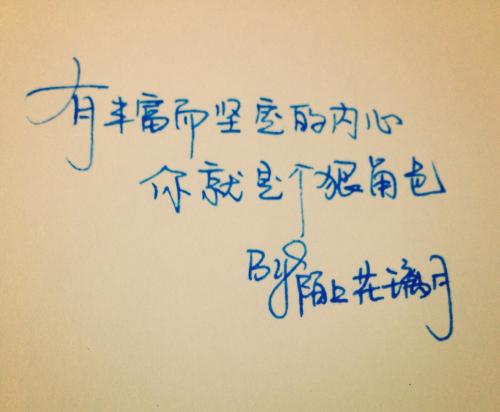 有丰富而坚定的内心
你就是个狠角色
By 陌上花璃月